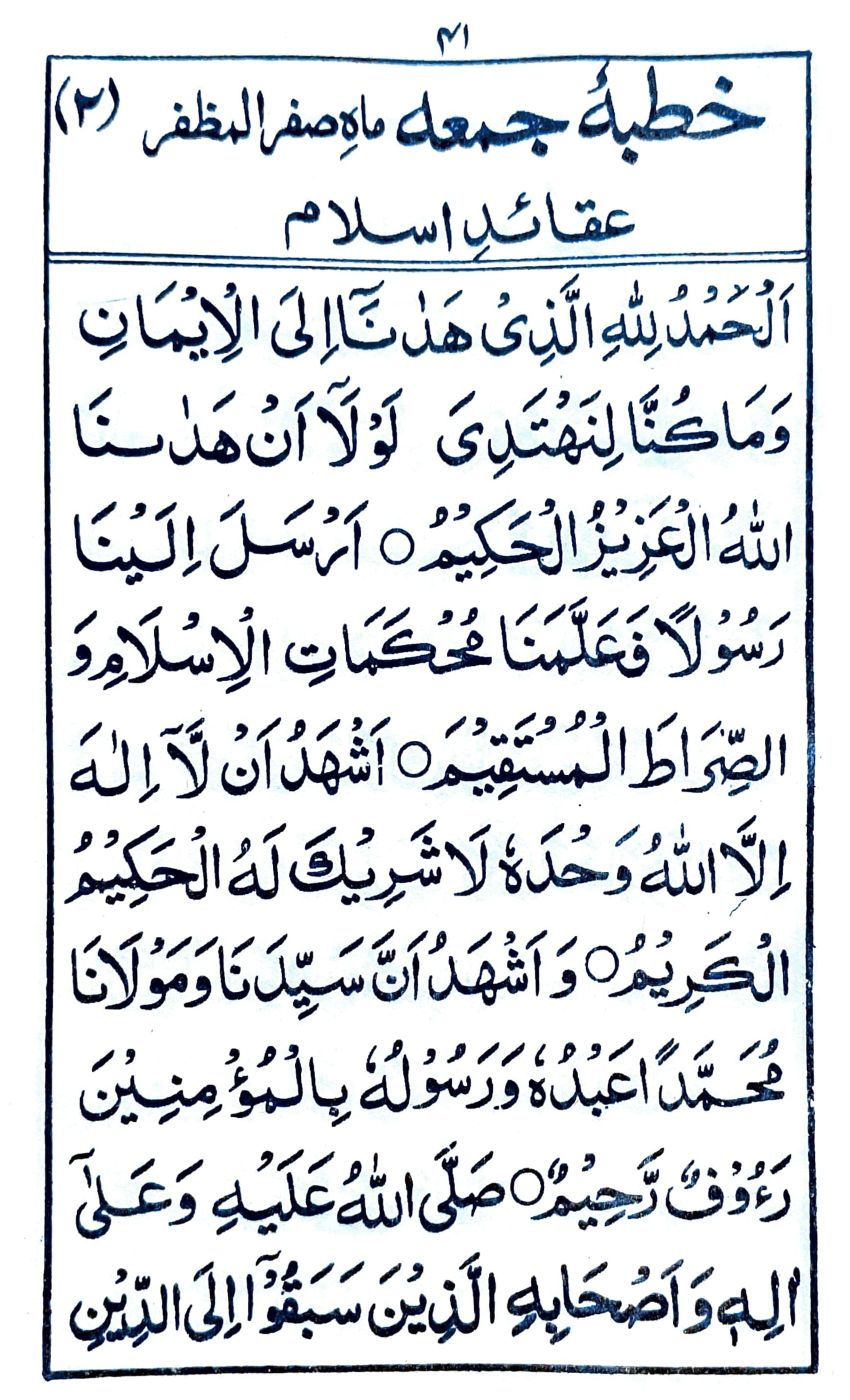 ۴۱
خطبۂ جمعه ماہِ صفر المظفر (۲)
عقائدِ اسلام
اَلْحَمْدُ لِلّٰهِ الَّذِیْ هَدٰىنَآ اِلَی الْاِیْمَانِ
وَمَا كُنَّا لِنَهْتَدِیَ لَوْلَآ اَنْ هَدٰىنَا
اللّٰهُ الْعَزِیْزُ الْحَكِیْمُ ○ اَرْسَلَ اِلَیْنَا
رَسُوْلًا فَعَلَّمَنَا مُحْكَمَاتِ الْاِسْلَامِ وَ
الصِّرَاطَ الْمُسْتَقِیْمَ ○ اَشْهَدُ اَنْ لَّآ اِلٰهَ
اِلَّا اللّٰهُ وَحْدَهٗ لَا شَرِیْكَ لَهُ الْحَكِیْمُ
الْكَرِیْمُ ○ وَ اَشْهَدُ اَنَّ سَیِّدَنَا وَمَوْلَانَا
مُحَمَّدًا عَبْدُهٗ وَرَسُوْلُهٗ بِالْمُؤْمِنِیْنَ
رَءُوْفٌ رَّحِیْمٌ ○ صَلَّی اللّٰهُ عَلَیْهِ وَعَلٰٓی
اٰلِهٖ وَاَصْحَابِهِ الَّذِیْنَ سَبَقُوْٓا اِلَی الدِّیْنِ